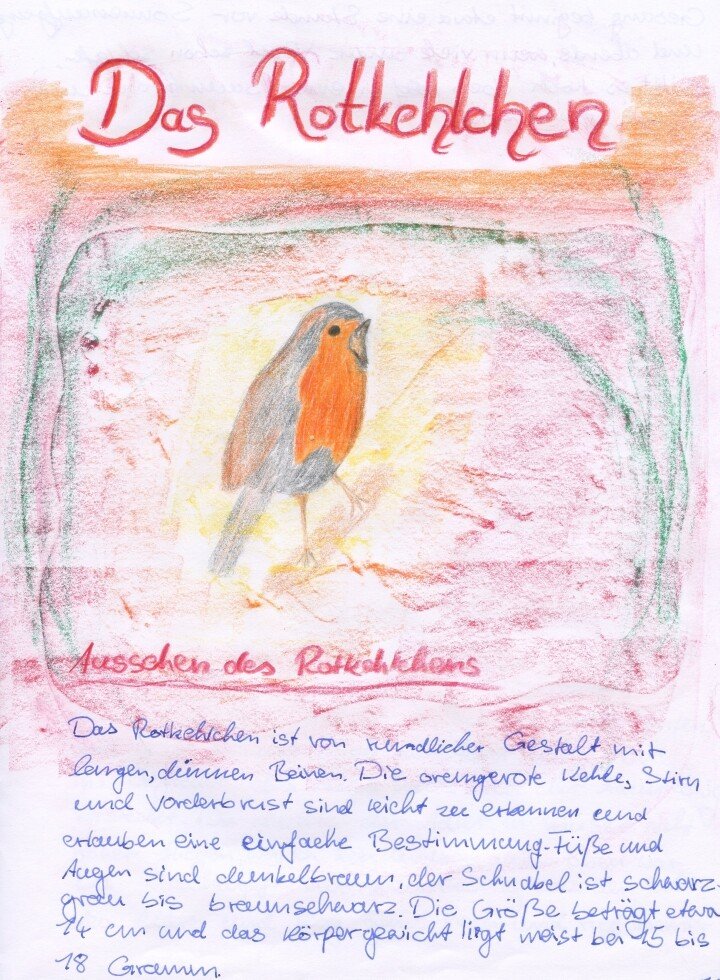 Das Rotkehlchen
Aussehen des Rotkehlchens
Das Rotkehlchen ist von rundlicher Gestalt mit
langen, dünnen Beinen. Die orangerote Kehle, Stirn
und Vorderbrust sind leicht zu erkennen und
erlauben eine einfache Bestimmung. Füße und
Augen sind dunkelbraun, der Schnabel ist schwarz-
grau bis braunschwarz. Die Größe beträgt etwa
14 cm und das Körpergewicht liegt meist bei 15 bis
18 Gramm.